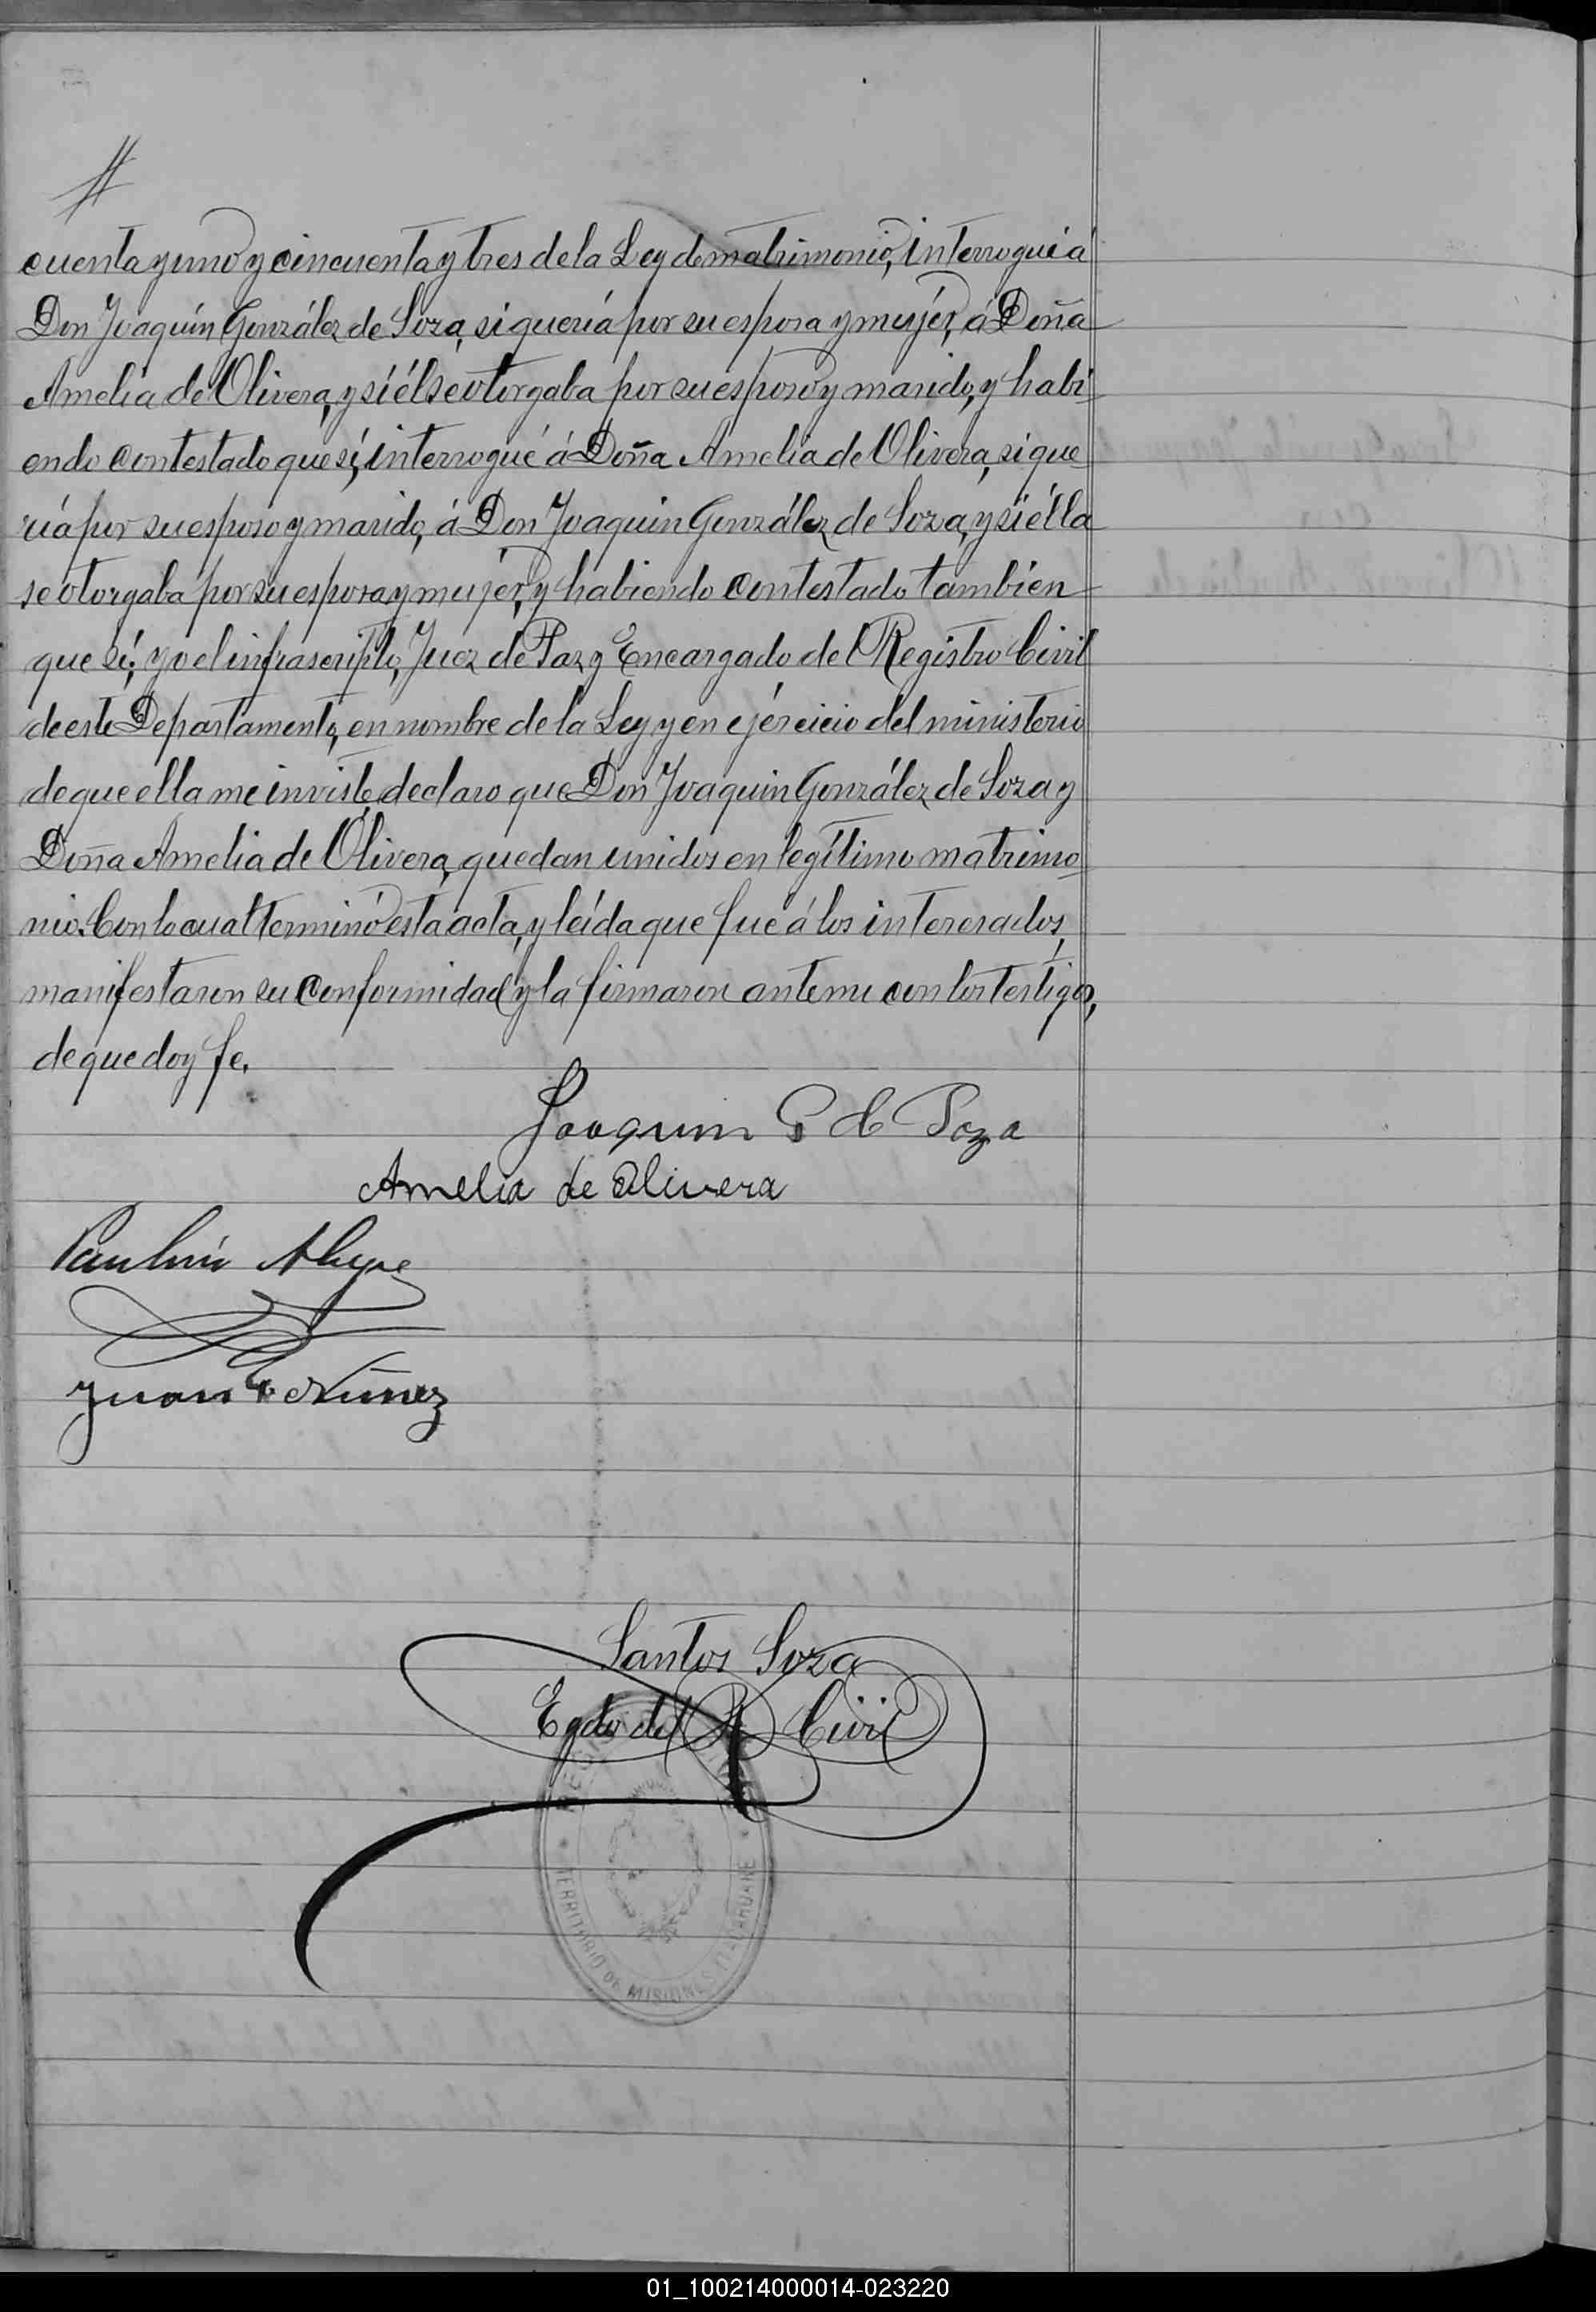 cuenta y uno y cincuenta y tres de la Ley de matrimonio, interrogué á
Don Joaquín González de Soza, si quería por su esposa y mujér, á Doña
Amelia de Olivera, y si él se otorgaba por su esposo y marido, y habi
endo contestado que sí, interrogué á Doña Amelia de Olivera, si que
ría por su esposo y marido, á Don Joaquin González de Soza, y si élla
se otorgaba por su esposa y mujér, y habiendo contestado tambien
que sí; yo el infrascripto, Juez de Paz y Encargado del Registro Civil
de este Departamento, en nombre de la Ley y en ejércicio del ministerio
de que ella me inviste, declaro que Don Joaquin González de Soza y
Doña Amelia de Olivera, quedan unidos en legítimo matrimo
nio. Con lo cual terminó esta acta, y leída que fué á los interesados,
manifestaron su conformidad y la firmaron ante mi con los testigos,
de que doy fe.
Joaquin G de Soza
Amelia de Olivera
Paulino Alegre
Juan Nuñez
Santos Soza
Egdo del R Civil
TERRITORIO DE MISIONES
01_100214000014-023220